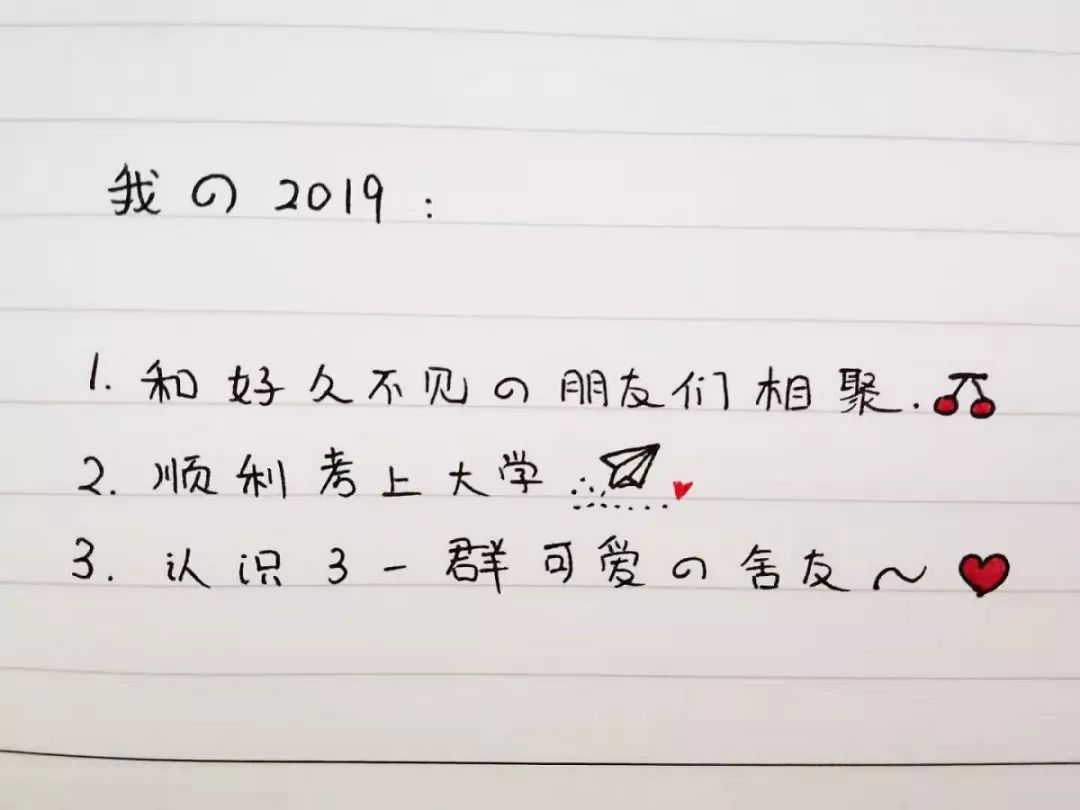 我の2019：
1. 和好久不见の朋友们相聚.
2. 顺利考上大学
3. 认识3一群可爱の舍友～